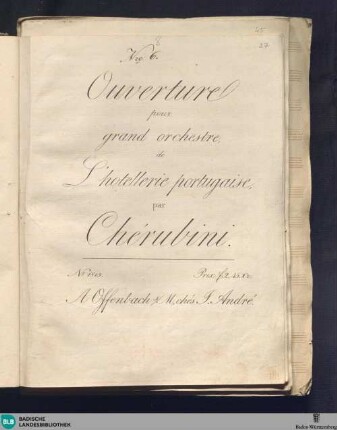 No. 6.
27
Ouverture
pour
grand orchestre
de
L'hotellerie portugaise.
par
Chérubini.
No
Prix f2.
A Offenbach s/M, chés J. André.
BLB BADISCHE
LANDESBIBLIOTHEK
Baden-Württemberg